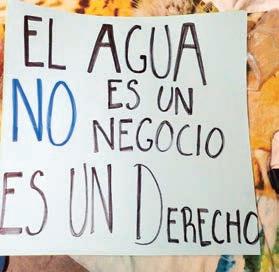 EL AGUA
NO ES UN
NEGOCIO
ES UN DERECHO